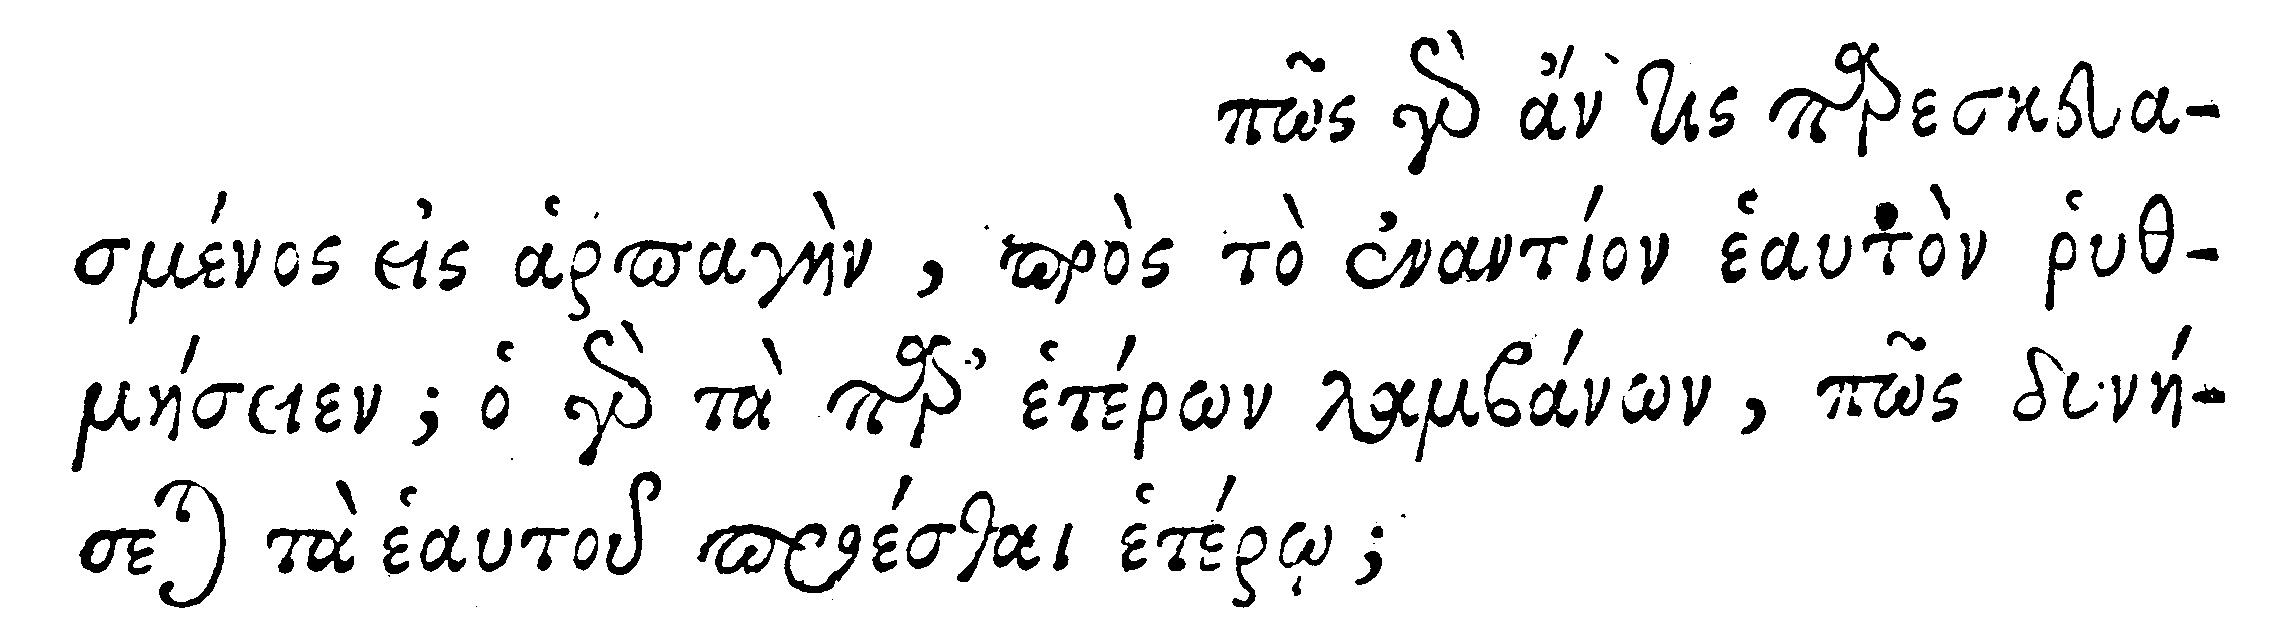 πῶς γὰρ ἄν τις παρεσκευα-
σμένος εἰς ἁρπαγὴν, πρὸς τὸ ἐναντίον ἑαυτὸν ῥυθ-
μήσειεν; ὁ γὰρ τὰ παρ' ἑτέρων λαμβάνων, πῶς δυνή-
σεται τὰ ἑαυτοῦ προέσθαι ἑτέρῳ;